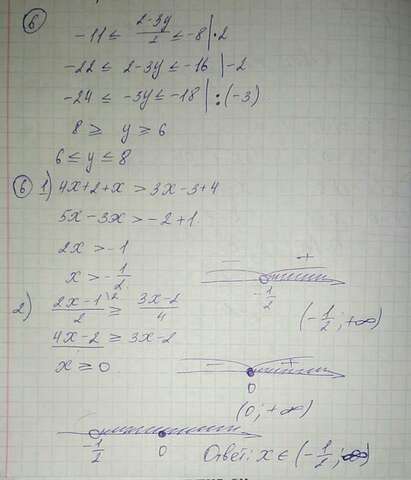 6
-11 ≤ (2-3y)/2 ≤ -8 |·2
-22 ≤ 2-3y ≤ -16 |-2
-24 ≤ -3y ≤ -18 | : (-3)
8 ≥ y ≥ 6
6 ≤ y ≤ 8
6 1) 4x+2+x > 3x-3+4
5x-3x > -2+1
2x > -1
x > -1/2
- +
-1/2
(-1/2; +∞)
2) (2x-1)/2 ≥ (3x-2)/4
4x-2 ≥ 3x-2
x ≥ 0
- +
0
(0; +∞)
-1/2 0
Ответ: x ∈ (-1/2; ∞)